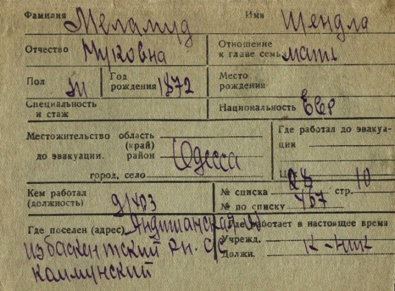 Фамилия Меламуд Имя Шендля
Отчество Муковна Отношение к главе семьи мать
Пол Год рождения 1872 Место рождения
Специальность и стаж Национальность Евр
Местожительство область
(край)
до эвакуации район Одесса
город, село
Где работал до эвакуации
Кем работал
(должность) № списка стр. 10
№ по списку
Где поселен (адрес) Андижанская работает в настоящее время
избаскентский рн. Учрежд.
Должн. к-ник
каммунский